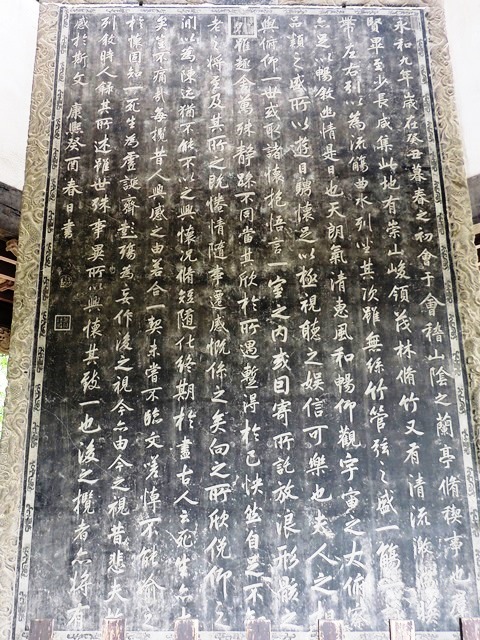 永和九年歲在癸丑暮春之初會于會稽山陰之蘭亭脩稧事也羣
賢畢至少長咸集此地有崇山峻領茂林脩竹又有清流激湍映
帶左右引以為流觴曲水列坐其次雖無絲竹管弦之盛一觴
亦足以暢敘幽情是日也天朗氣清惠風和暢仰觀宇宙之大俯察
品類之盛所以遊目騁懷足以極視聽之娛信可樂也夫人之相
與俯仰一世或取諸懷抱悟言一室之內或因寄所託放浪形骸之
外雖趣舍萬殊靜躁不同當其欣於所遇暫得於己怏然自足不知
老之將至及其所之既惓情隨事遷感慨係之矣向之所欣俛仰之
間以為陳迹猶不能不以之興懷況脩短隨化終期於盡古人云死生亦大
矣豈不痛哉每攬昔人興感之由若合一契未嘗不臨文嗟悼不能喻之
於懷固知一死生為虛誕齊彭殤為妄作後之視今亦由今之視昔悲夫故
列敘時人錄其所述雖世殊事異所以興懷其致一也後之攬者亦將有
感於斯文 康熙癸酉春日書